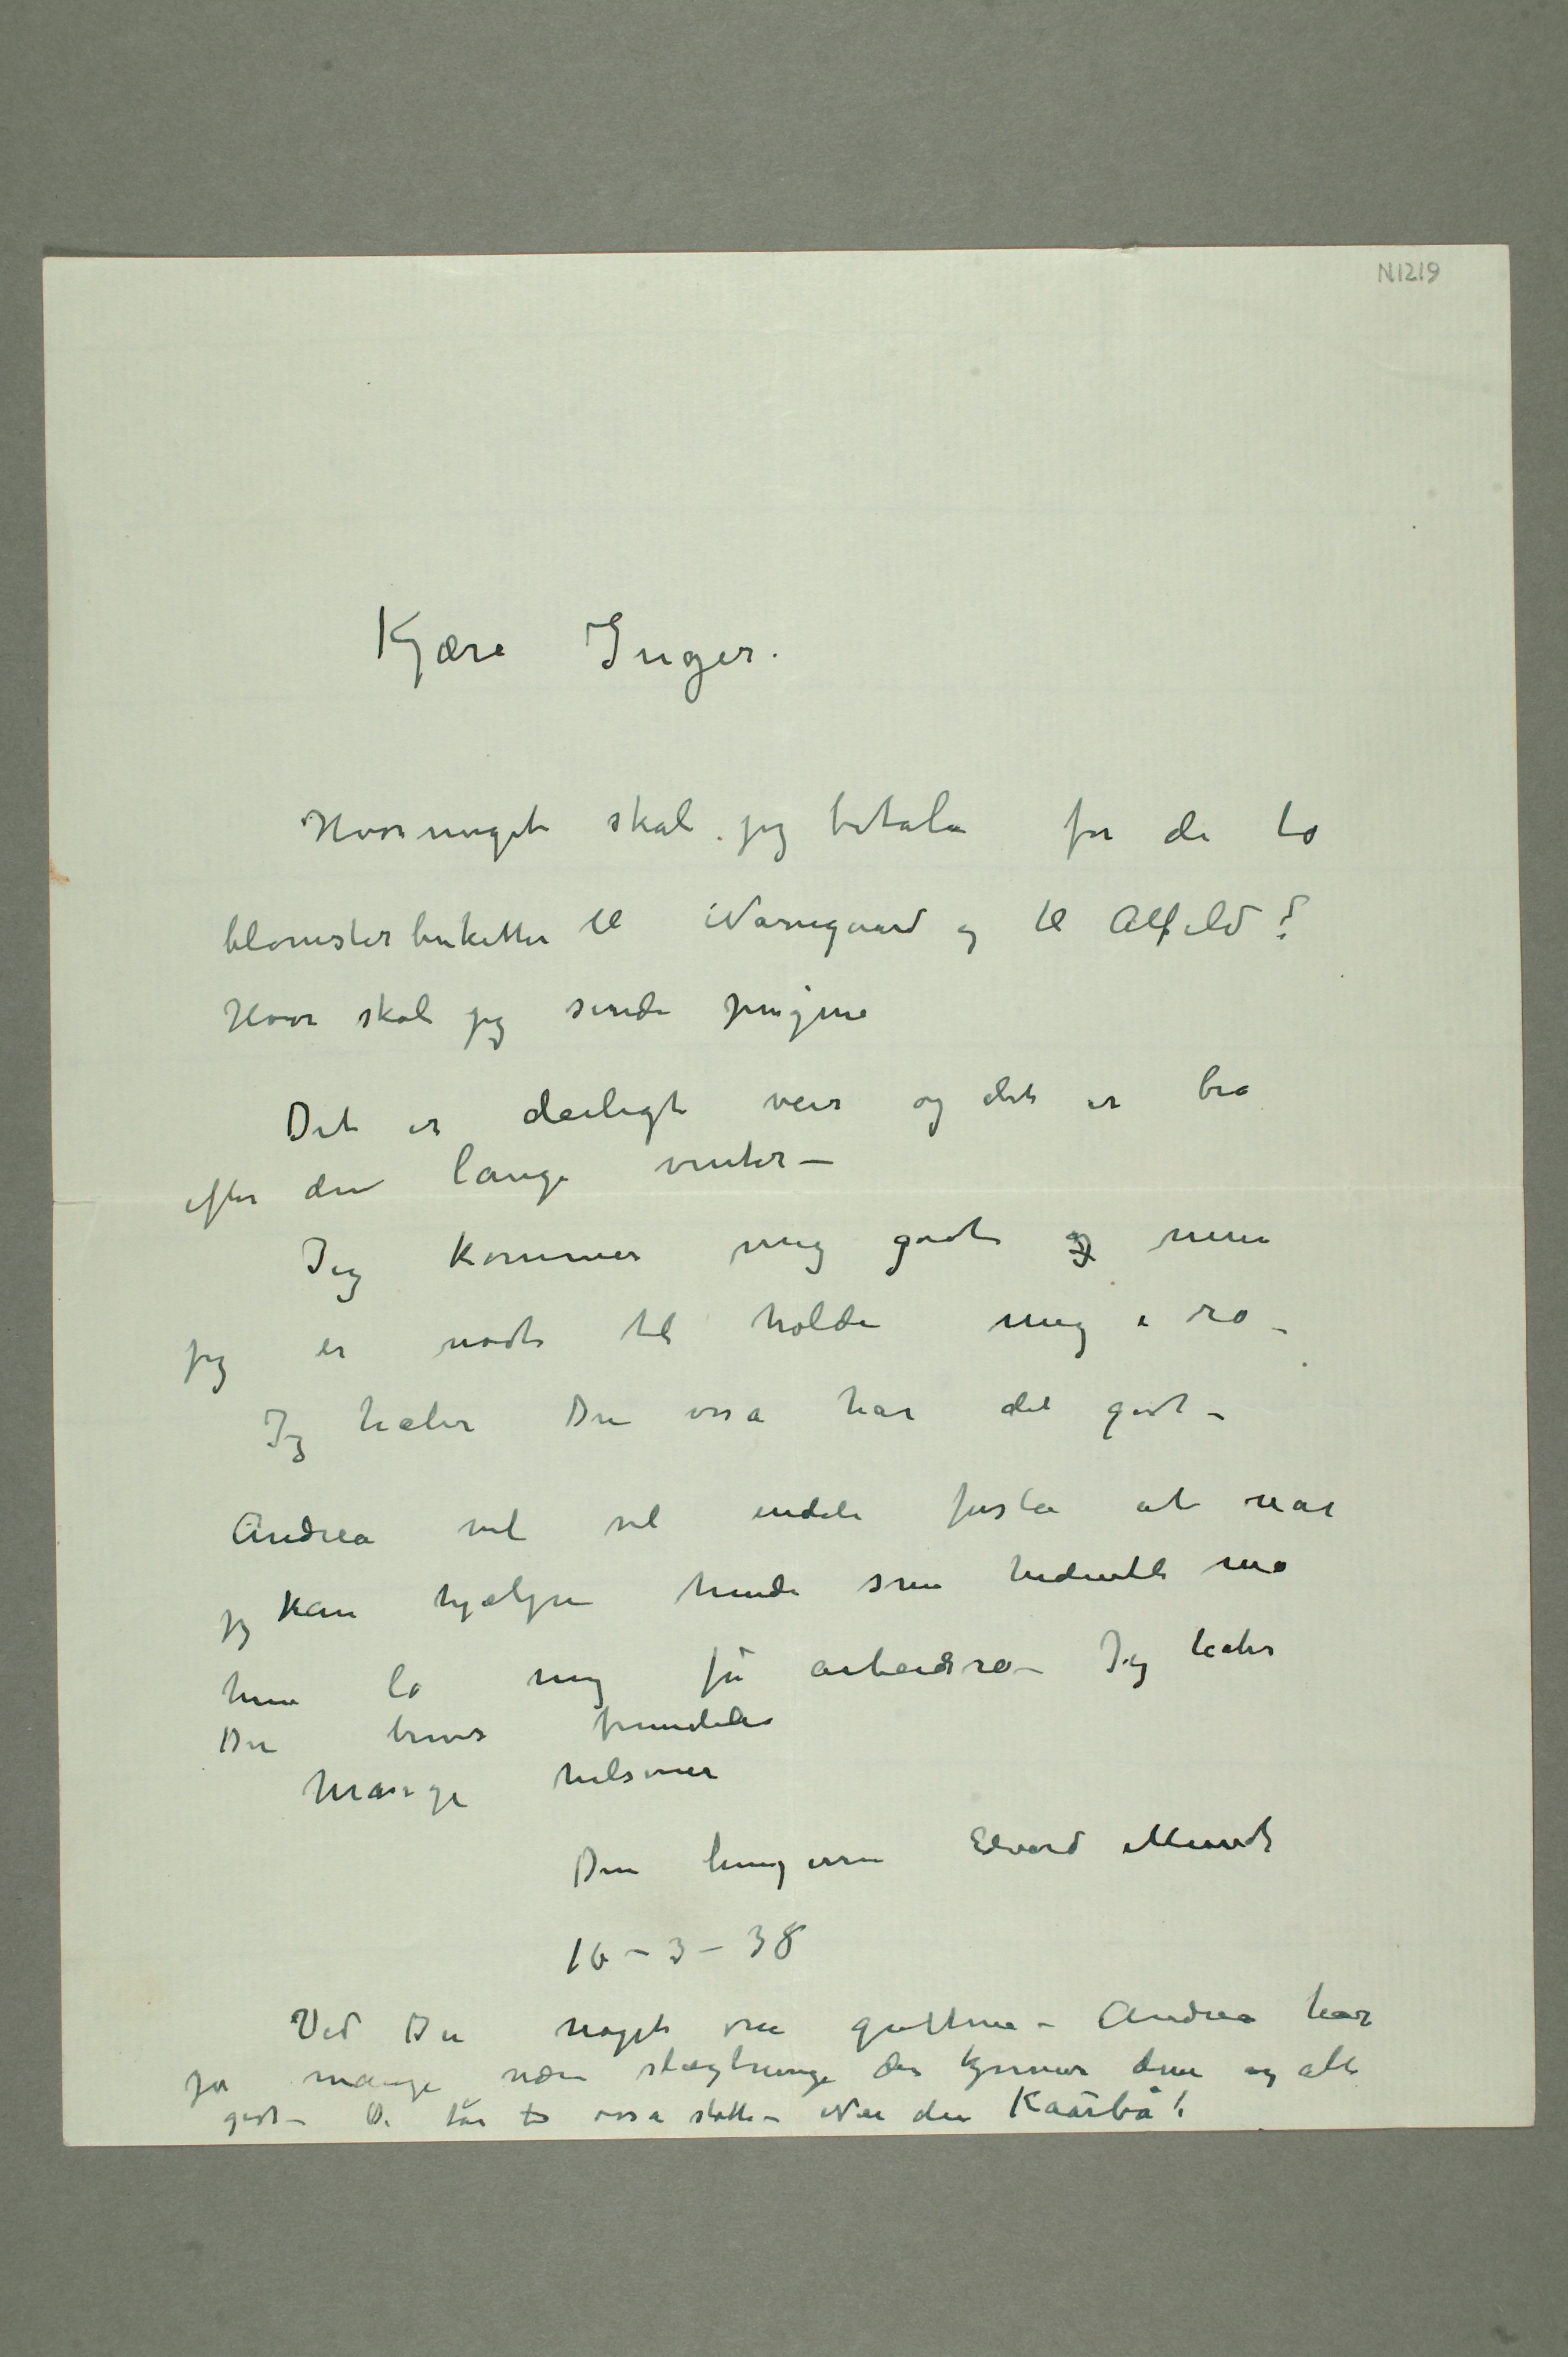 N1219
Kjære Inger.
Hvormeget skal jeg betale for de to
blomsterbuketter til Nørregaard og til Alfild?
Hvor skal jeg sende pengene
Det er deiligt veir og det er bra
efter den lange vinter –
Jeg kommer mig godt og men
jeg er nødt til holde mig i ro –
Jeg haaber Du osså har det godt –
Andrea vil vel endeli forstå at når
jeg kan hjælpe hende som hidentil må
hun la mig få arbeidsro – Jeg haaber
Du
Mange hilsener
Din hengivne Edvard Munch
16 – 3 – 38
Ved Du noget om guttene – Andrea har
jo mange nære slægtninge der kjenner dem og alt
godt – De får osså støtte – Når den Kaarbø!